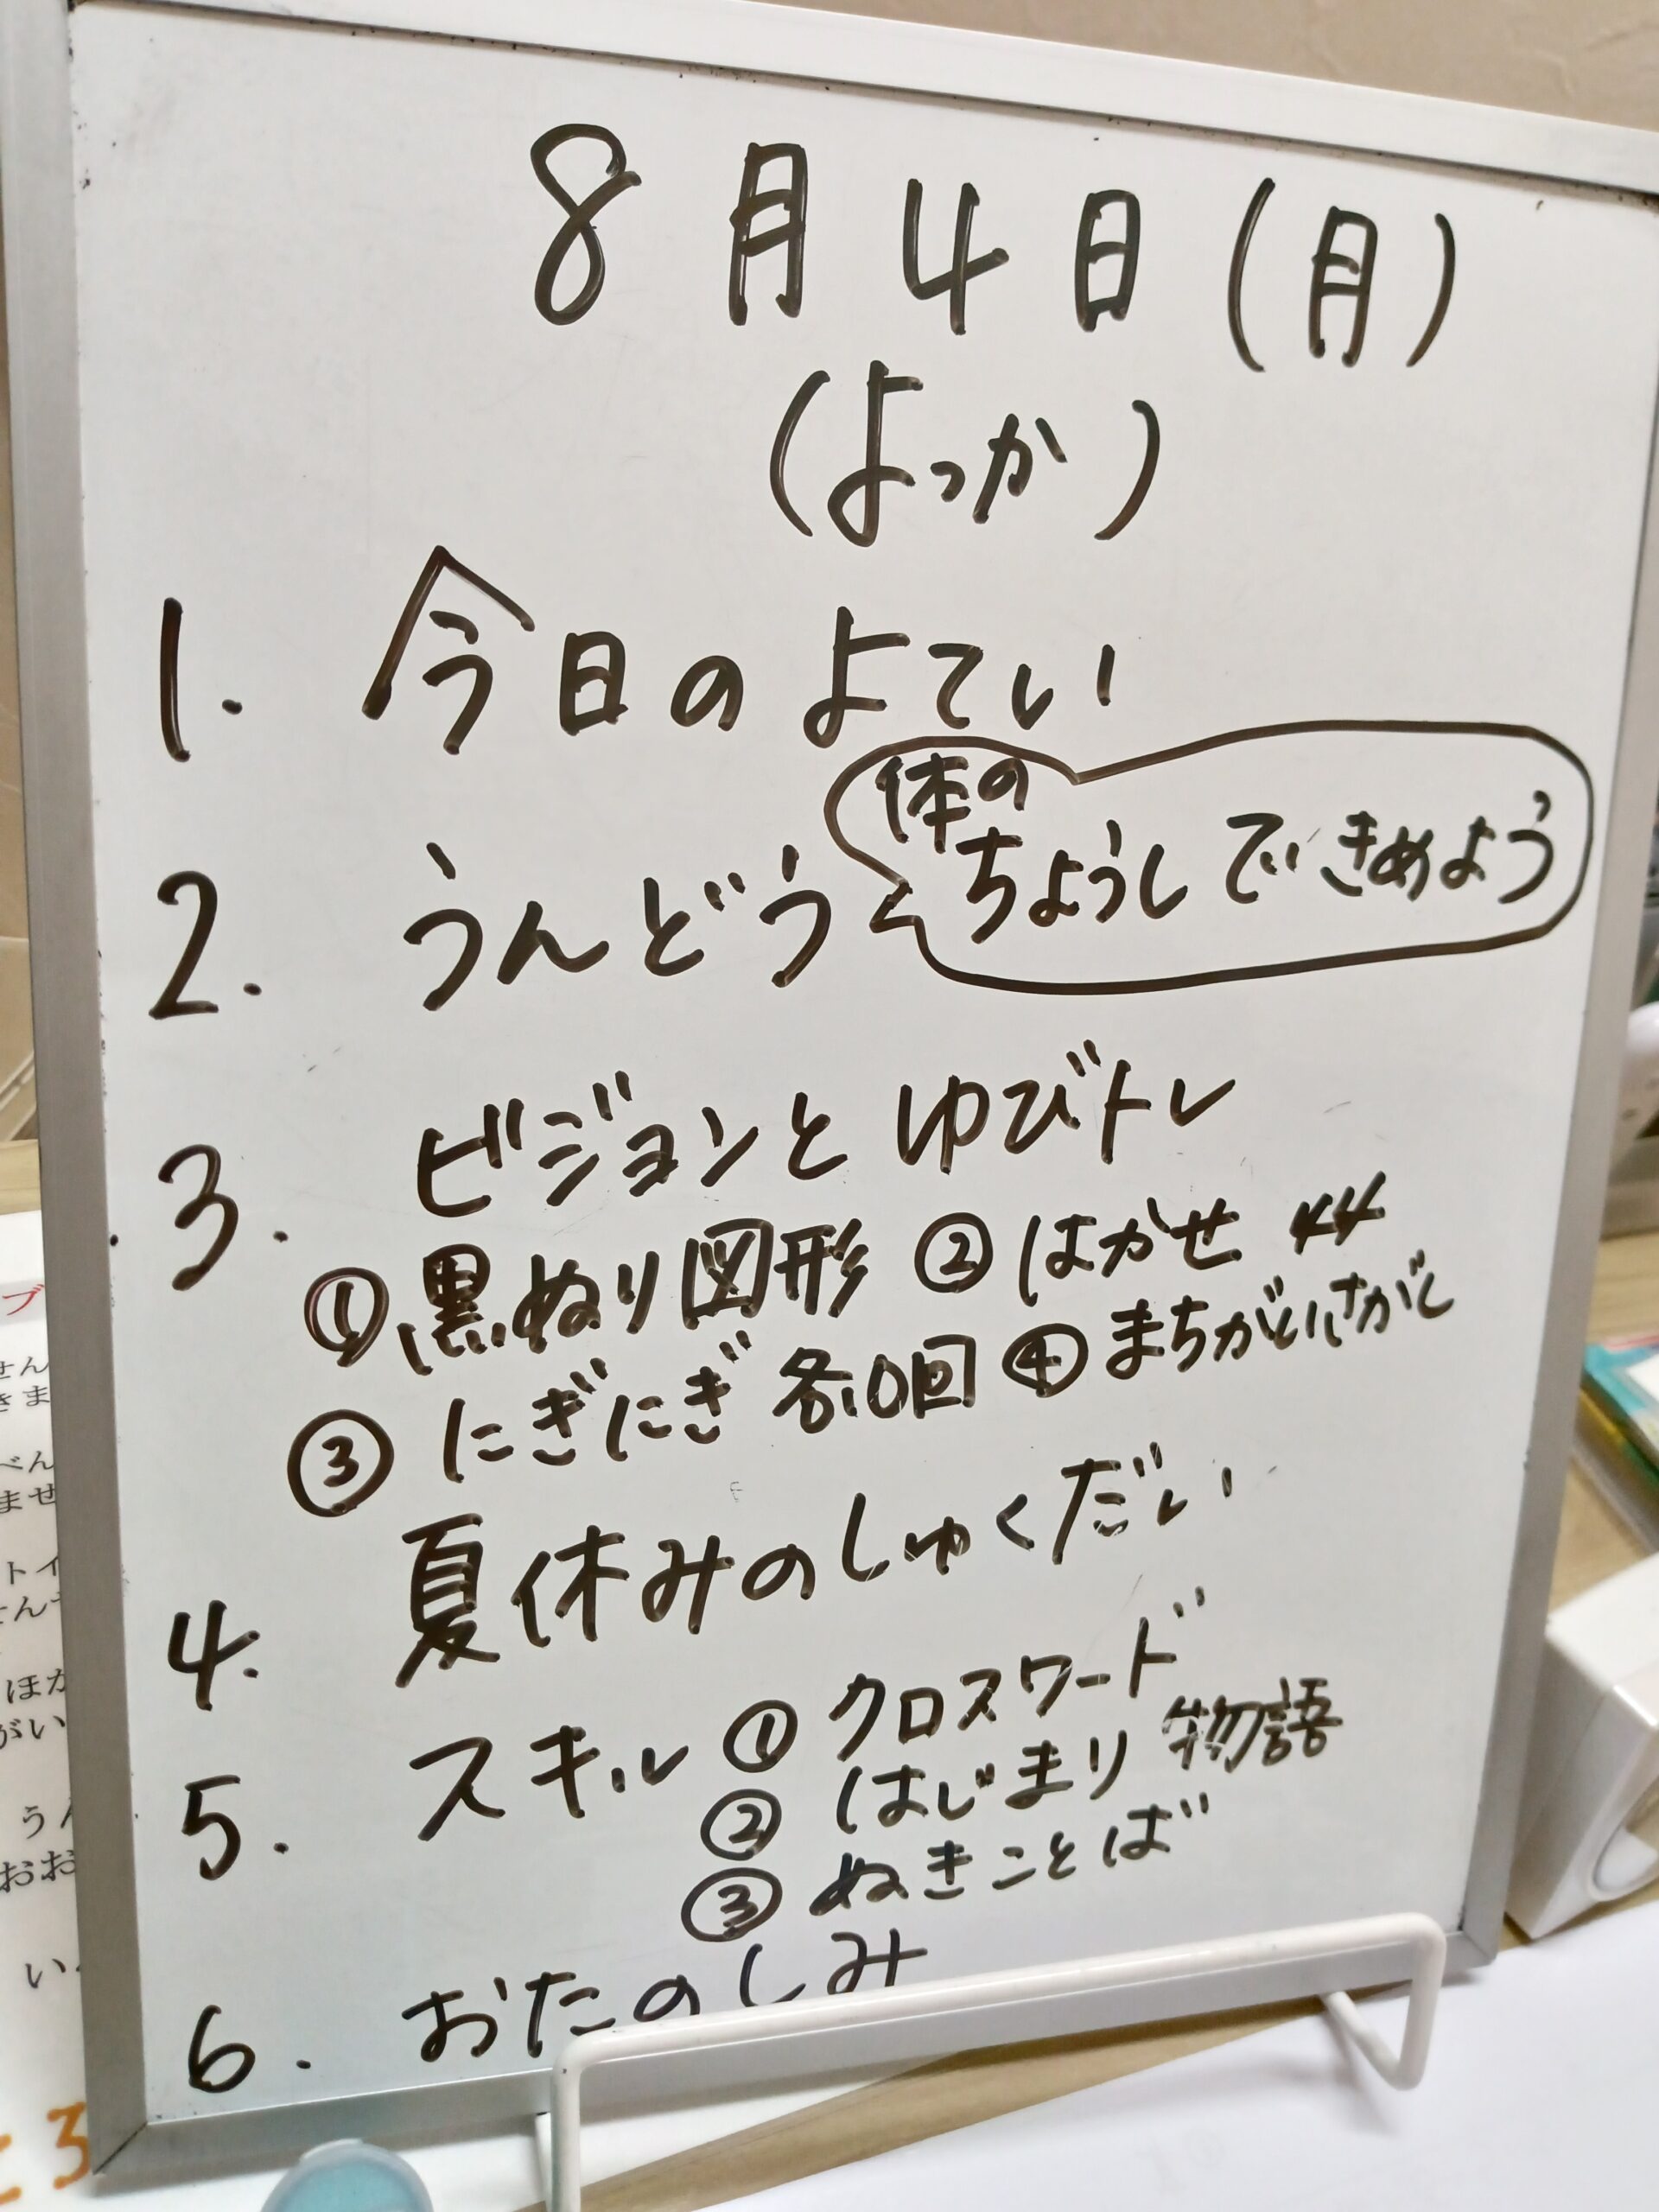 8月4日(月)
(よっか)
1. 今日のよてい
2. うんどう
体の
ちょうしできめよう
3. ビジョンとゆびトレ
①黒ぬり図形 ②はかせ 44
③にぎにぎ各10回 ④まちがいさがし
4. 夏休みのしゅくだい
5. スキル ①クロスワード
②はじまり物語
③ぬきことば
6. おたのしみ